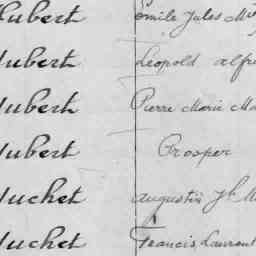 Hubert Emile Jules M
Hubert Leopold Alfr
Hubert Pierre Marie Ma
Hubert Prosper
Huchet Augustin Jh M
Huchet Francis Laurent